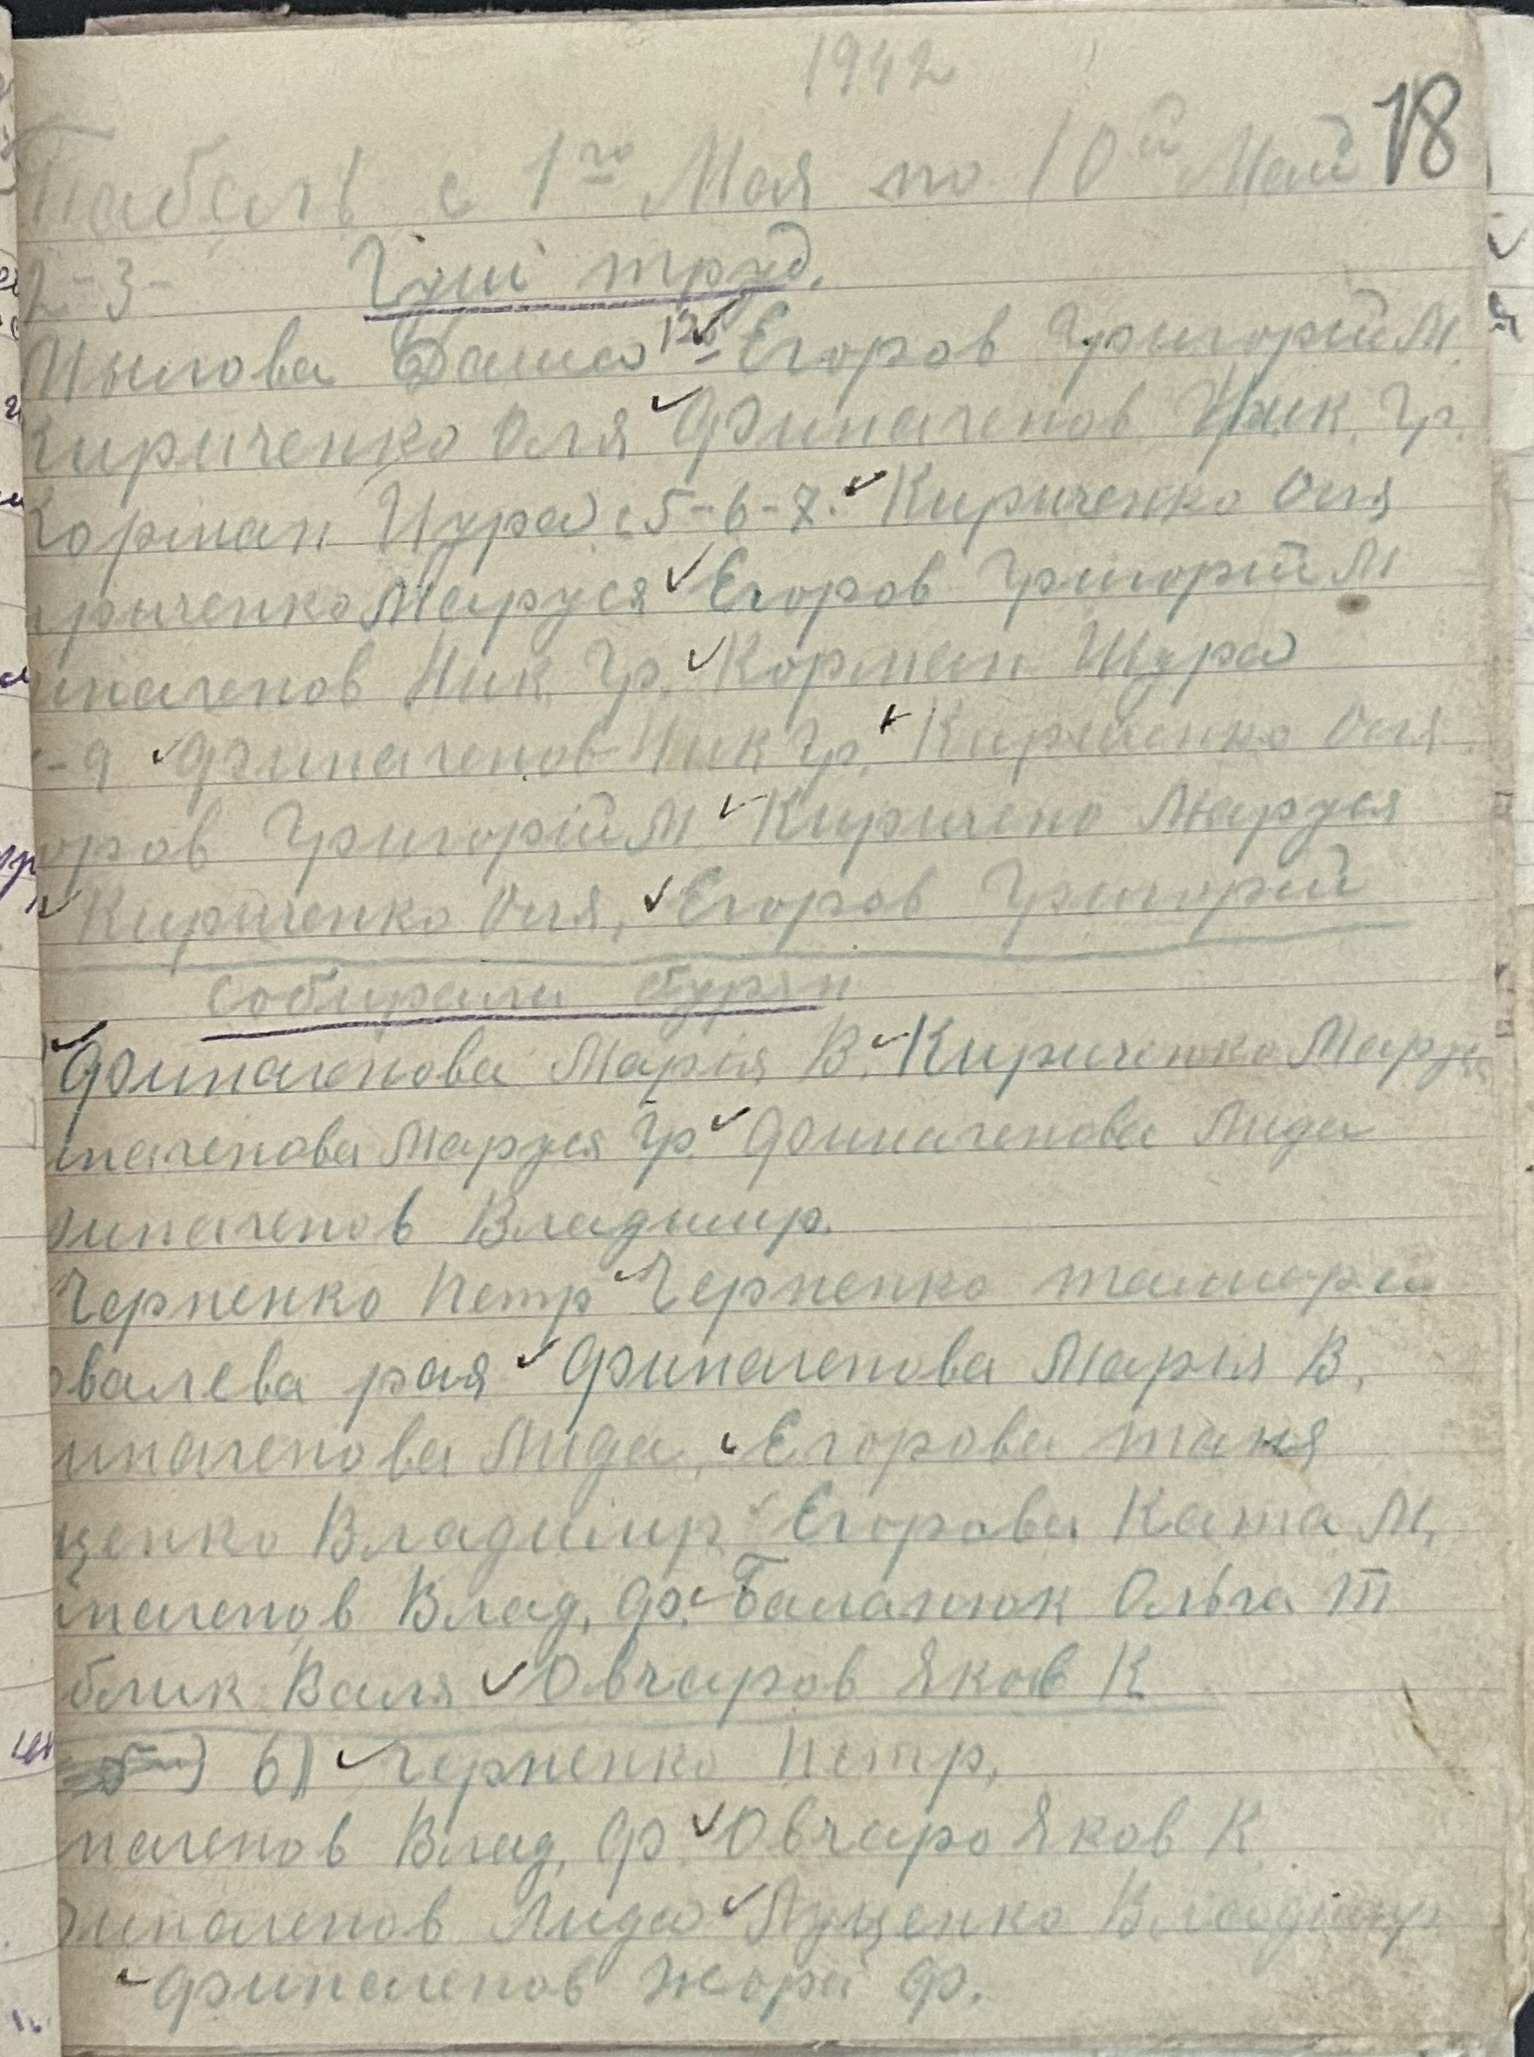 1942
18
Табель с 1го Мая по 10й Май
2-3- Гуж труд.
Шылова Даша Егоров Григорій М.
Кириченко Оля Финагенов Ник. Гр.
Корман Шура 5-6-7. Кириченко Оля
риченко Маруся Егоров Григорій М
инагенов Ник Гр. Корман Шура
-9 Финагенов Ник Гр. Кириченко Оля
оров Григорій М Киричено Маруся
Кириченко Оля, Егоров Григорій
собирали бурян
Финагенова Марія В. Кириченко Маруся
инагенова Маруся Гр. Финагенова Лида
финагенов Владимир.
Черненко Петр Черненко тамара
овалева рая Финагенова Марія В.
инагенова Лида, Егорова таня
щенко Владимир Егорова Катя М.
инагенов Влад. Ф. Баланюк Ольга Т
блик Валя Овчаров Яков К
6) Черненко Петр,
нагенов Влад. Ф Овчаро Яков К
финагенов Лида Лущенко Владимир
Финагенов Жора Ф.